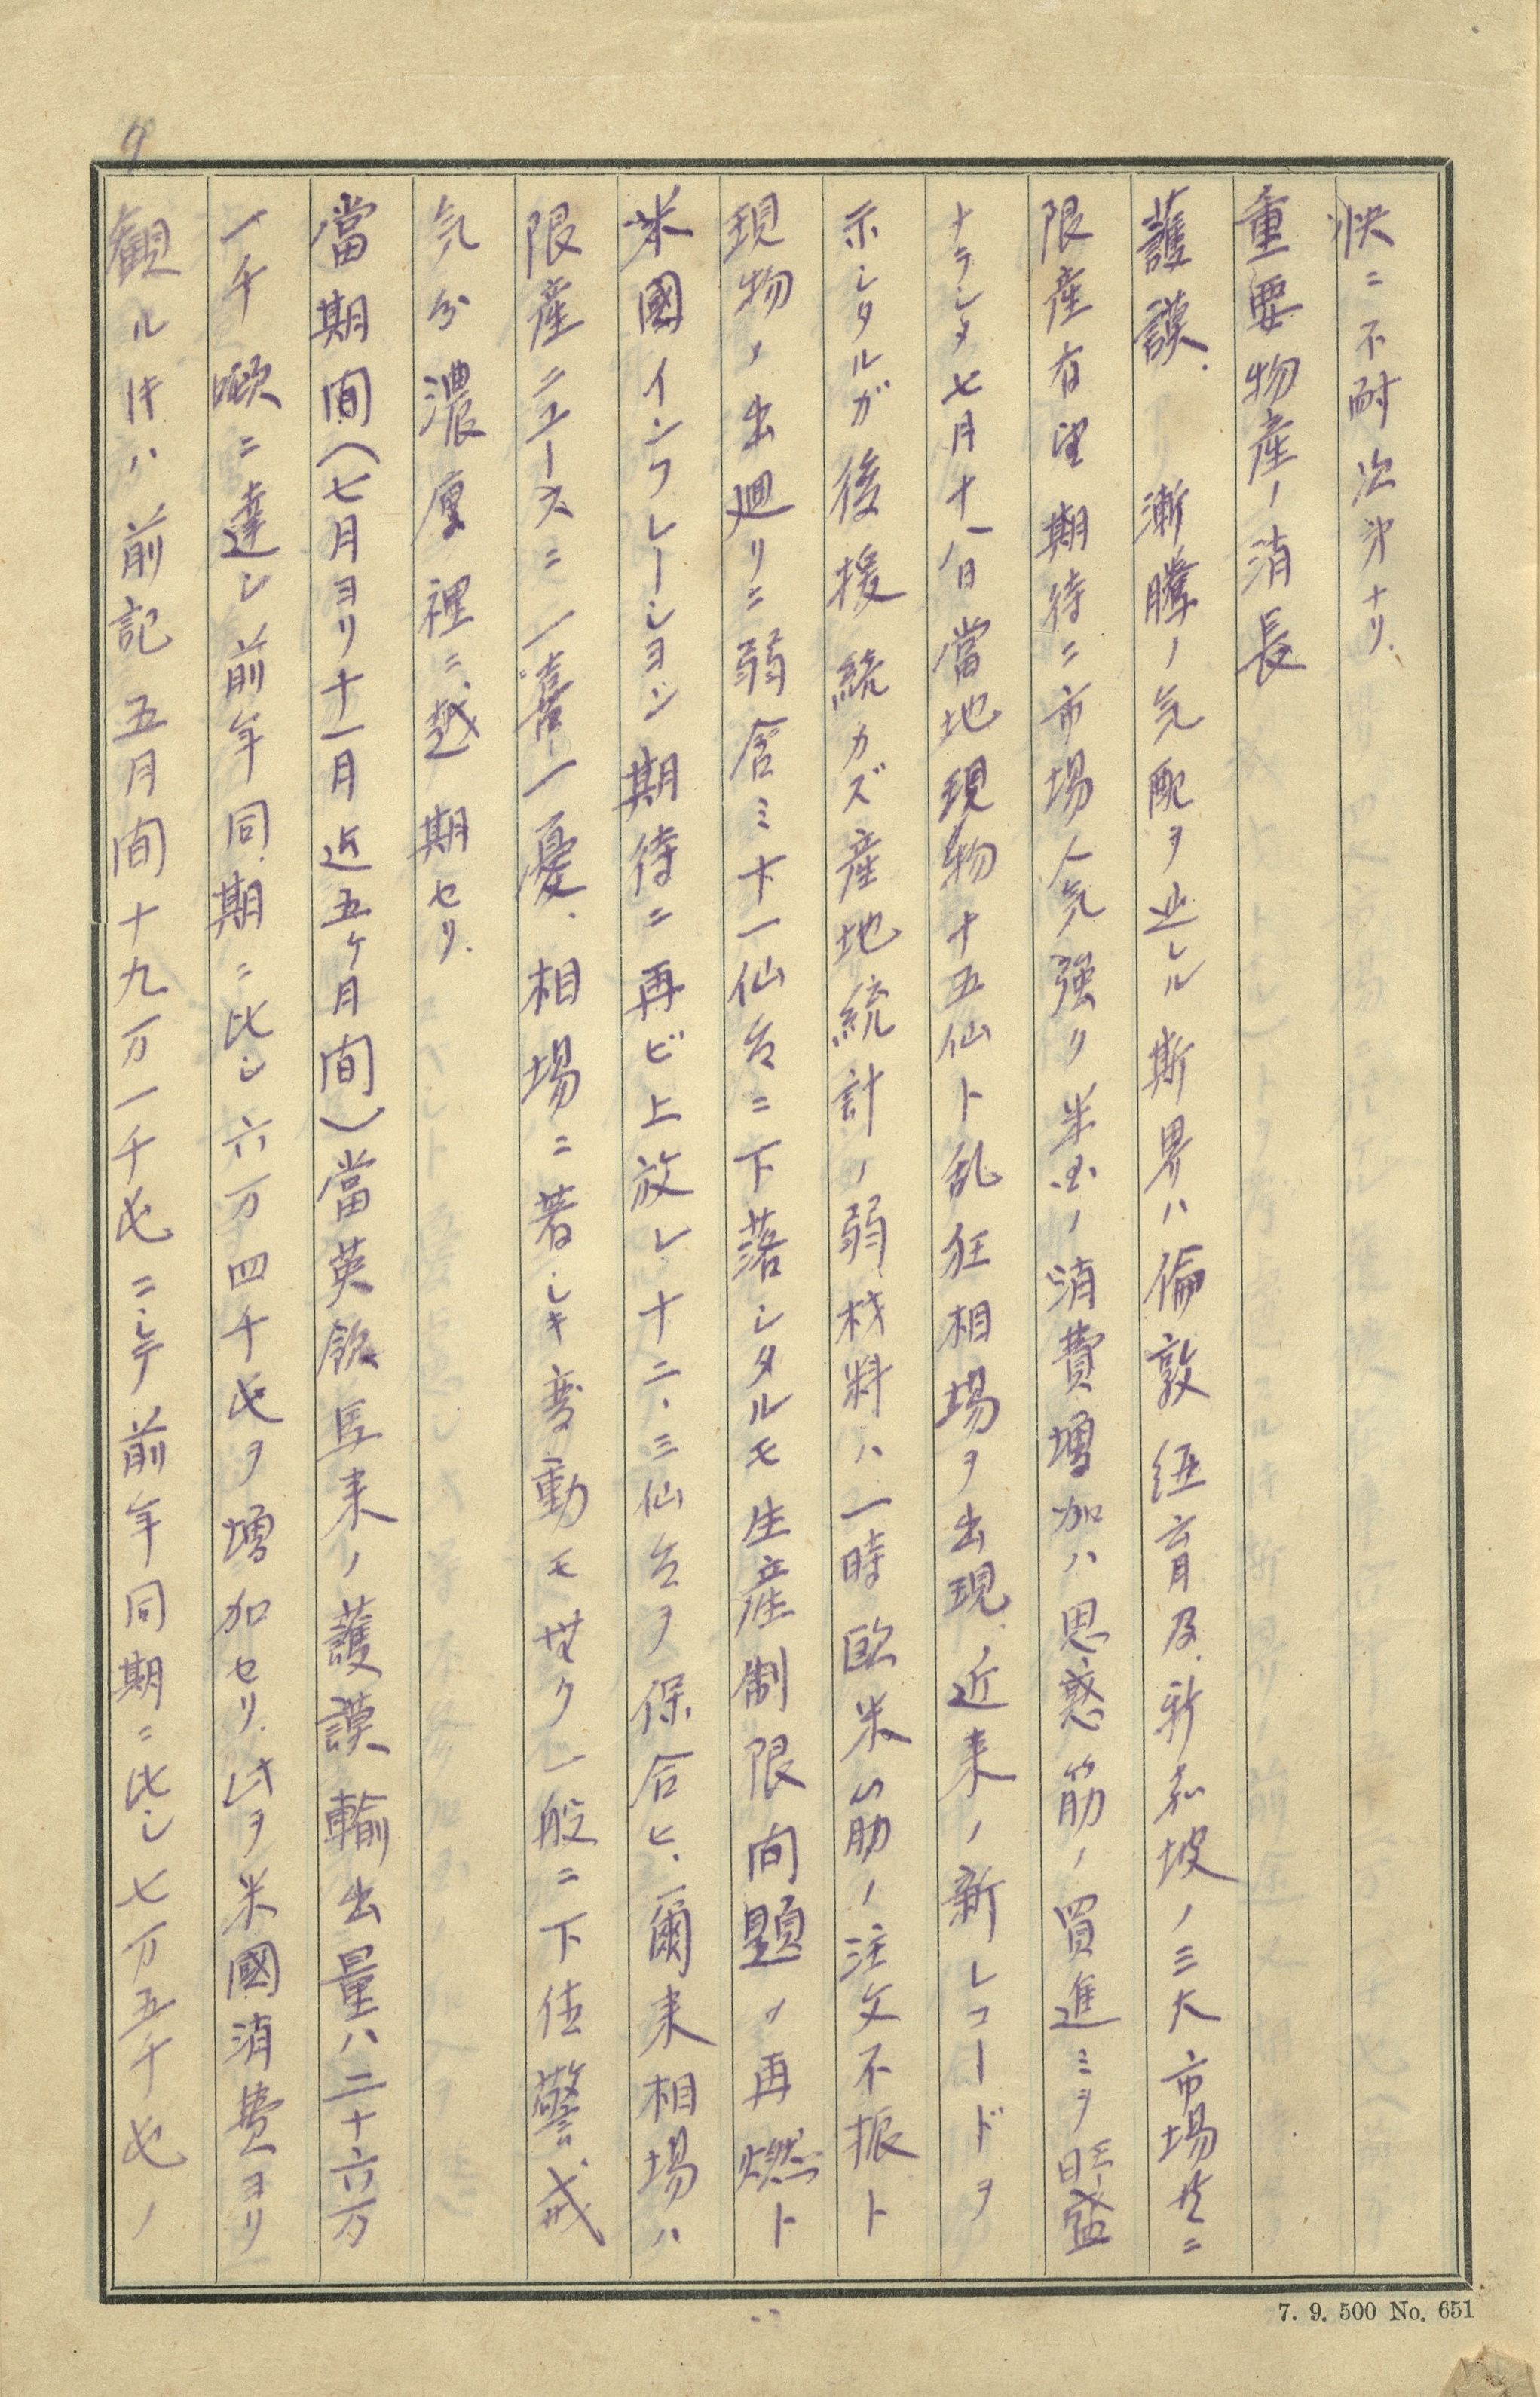 快ニ不耐次第ナリ.
重要物産ノ消長
護謨. 漸騰ノ気配ヲ辿レル斯界ハ倫敦紐育及新嘉坡ノ三大市場共ニ
限産有望期待ニ市場人気強ク米国ノ消費増加ハ思惑筋ノ買進ミヲ旺盛
ナラシメ七月十八日當地現物十五仙ト乱狂相場ヲ出現、近来ノ新レコードヲ
示シタルガ後援続カズ産地統計ノ弱材料ハ一時欧米筋ノ注文不振ト
現物ノ出廻リニ弱含ミ十一仙台ニ下落シタルモ生産制限問題ノ再燃ト
米國インフレーション期待ニ再ビ上放レ十二、三仙台ヲ保合ヒ、爾来相場ハ
限産ニュースニ一喜一憂、相場ニ著シキ変動モ無ク一般ニ下値警戒
気分濃厚裡ニ越期セリ.
當期間(七月ヨリ十一月迄五ケ月間)當英領馬来ノ護謨輸出量ハ二十六万
一千噸ニ達シ前年同期ニ比シ六万四千屯ヲ増加セリ.此ヲ米國消費ヨリ
観ル時ハ前記五月間十九万一千屯ニシテ前年同期ニ比シ七万五千屯ノ
9
7. 9. 500 No. 651